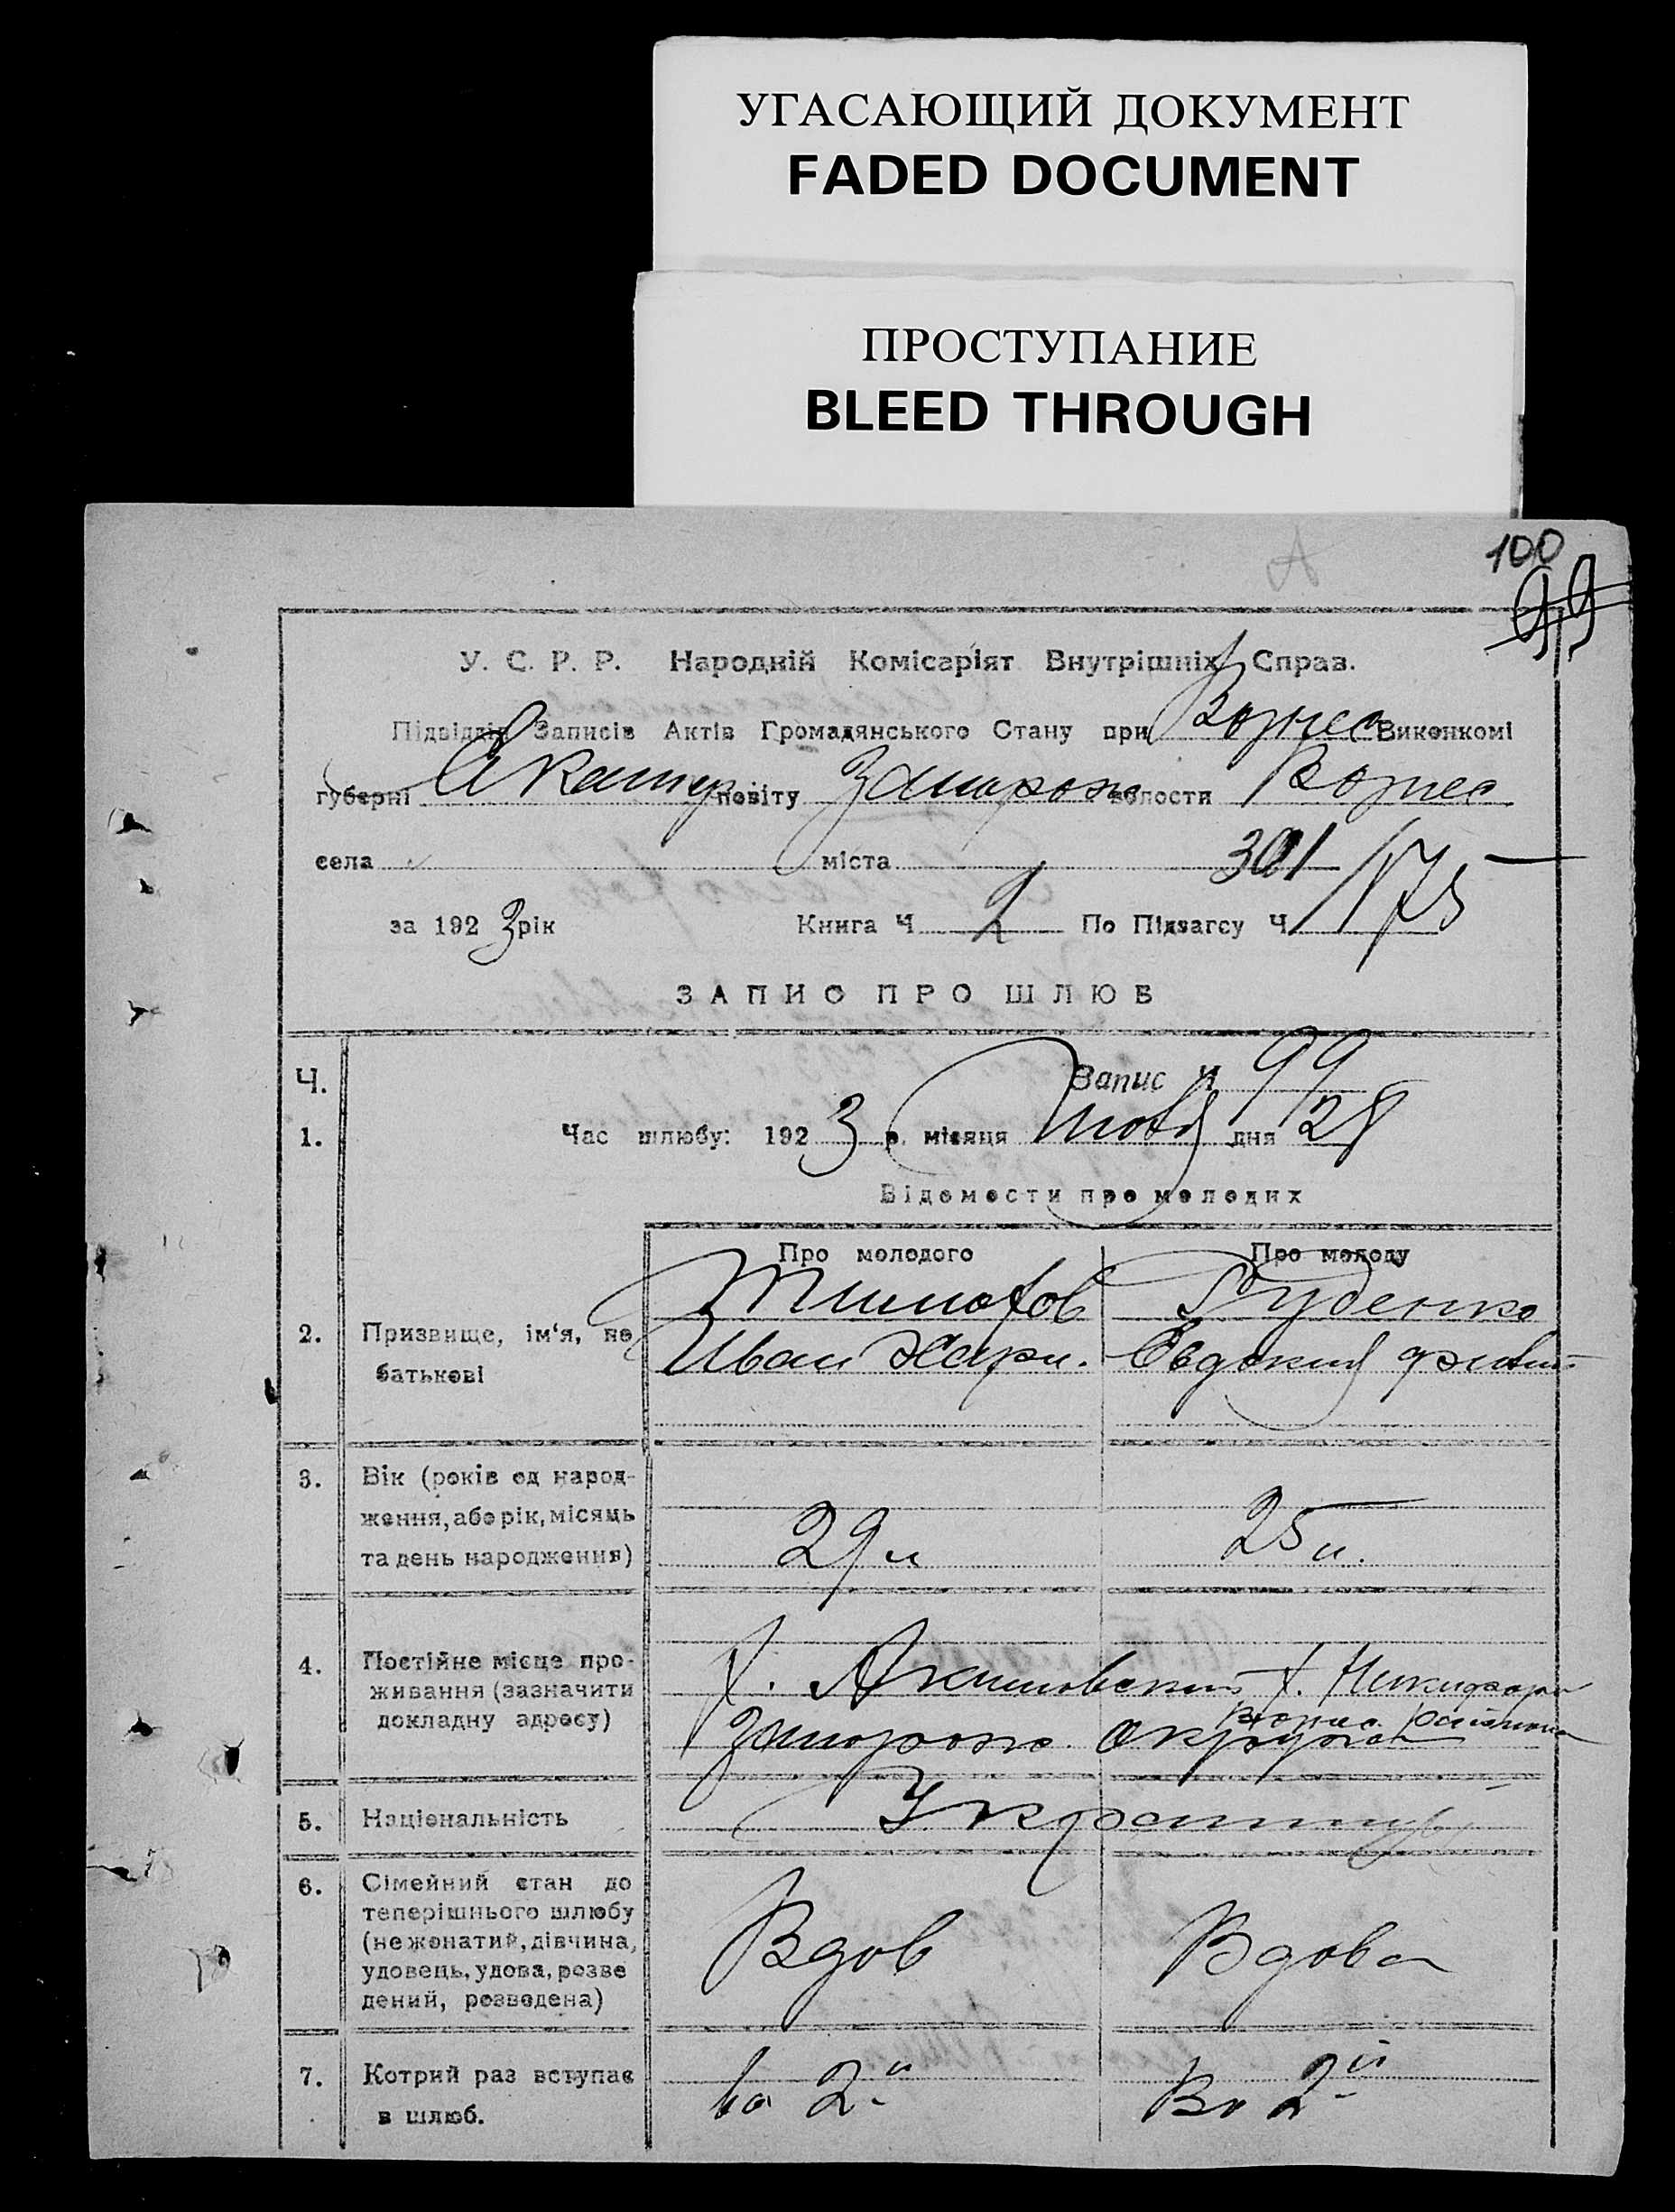 УГАСАЮЩИЙ ДОКУМЕНТ
FADED DOCUMENT
ПРОСТУПАНИЕ
BLEED THROUGH
100
99
У. С. Р. Р. Народній Комісаріят Внутрішніх Справ.
Підвідділ Записів Актів Громадянського Стану при Вознес Виконкомі
губерні Екатер повіту Запорож волости Вознес
села міста 301
за 1923 рік Книга Ч 2 По Підзагсу Ч 175
ЗАПИС ПРО ШЛЮБ
Ч. Запис Ч 99
1. Час шлюбу: 1923 р. місяця дня 28
Відомости про молодих
Про молодого Про молоду
2. Призвище, ім'я, по батькові
Руденко
Иван Хари. Евдокия
3. Вік (років од народ-
ження, або рік, місяць
та день народження)
29 л 25 л.
4. Постійне місце про-
живання (зазначити
докладну адресу)
х. х.
Запорож. округа
5. Національність
Украинцы
6. Сімейний стан до
теперішнього шлюбу
(не жонатий, дівчина,
удовець, удова, розве
дений, розведена)
Вдов Вдова
7. Котрий раз вступає
в шлюб.
во 2й Во 2й